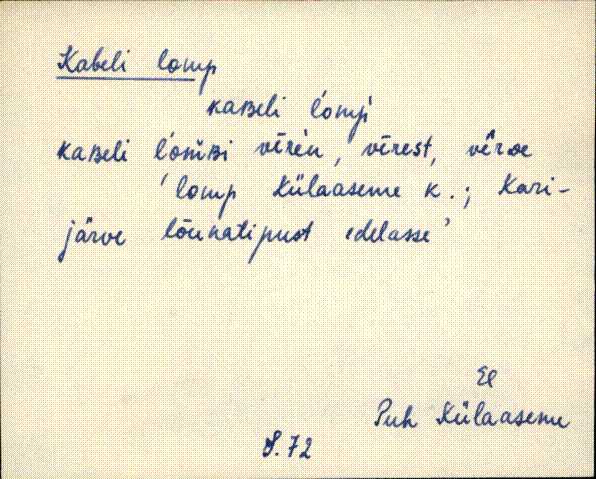 Kabeli lomp
kaʙeli lomp
kaʙeli lomʙi vēren, vērest, vērde
'lomp Külaaseme k.; Kari-
järve lõunatipust edelasse'
El
Puh Külaaseme
S. 72